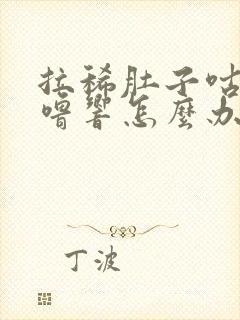 拉稀肚子咕
噜響怎麼办
丁波